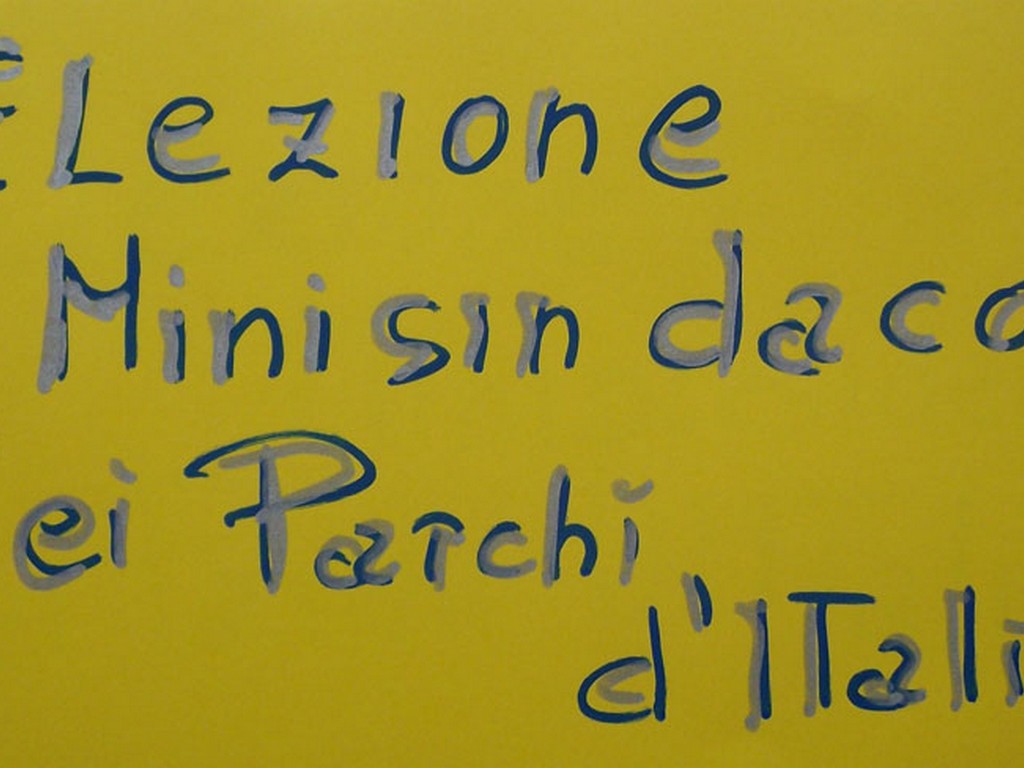 ELezione
Minisindaco
ei Parchi
d'ITali